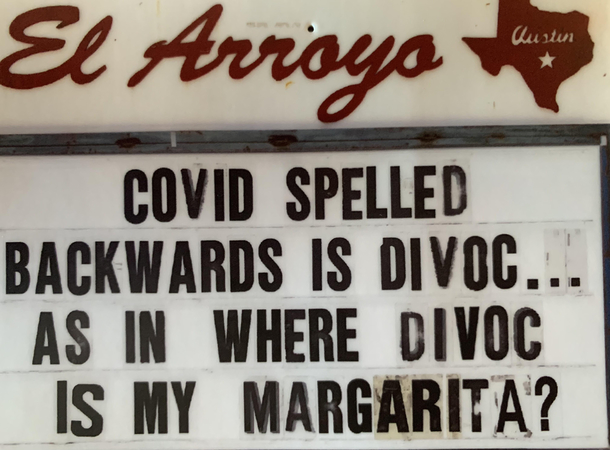 El Arroyo
Austin
COVID SPELLED
BACKWARDS IS DIVOC...
AS IN WHERE DIVOC
IS MY MARGARITA?